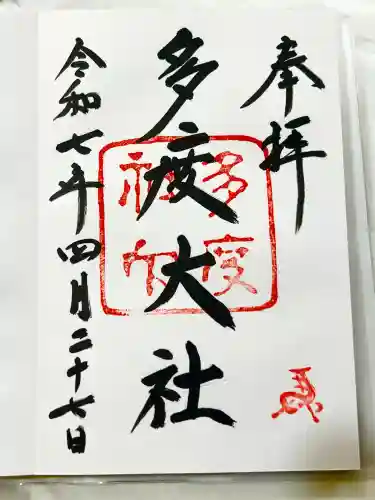 奉拝
多度大社
令和七年四月二十七日
多度
大社